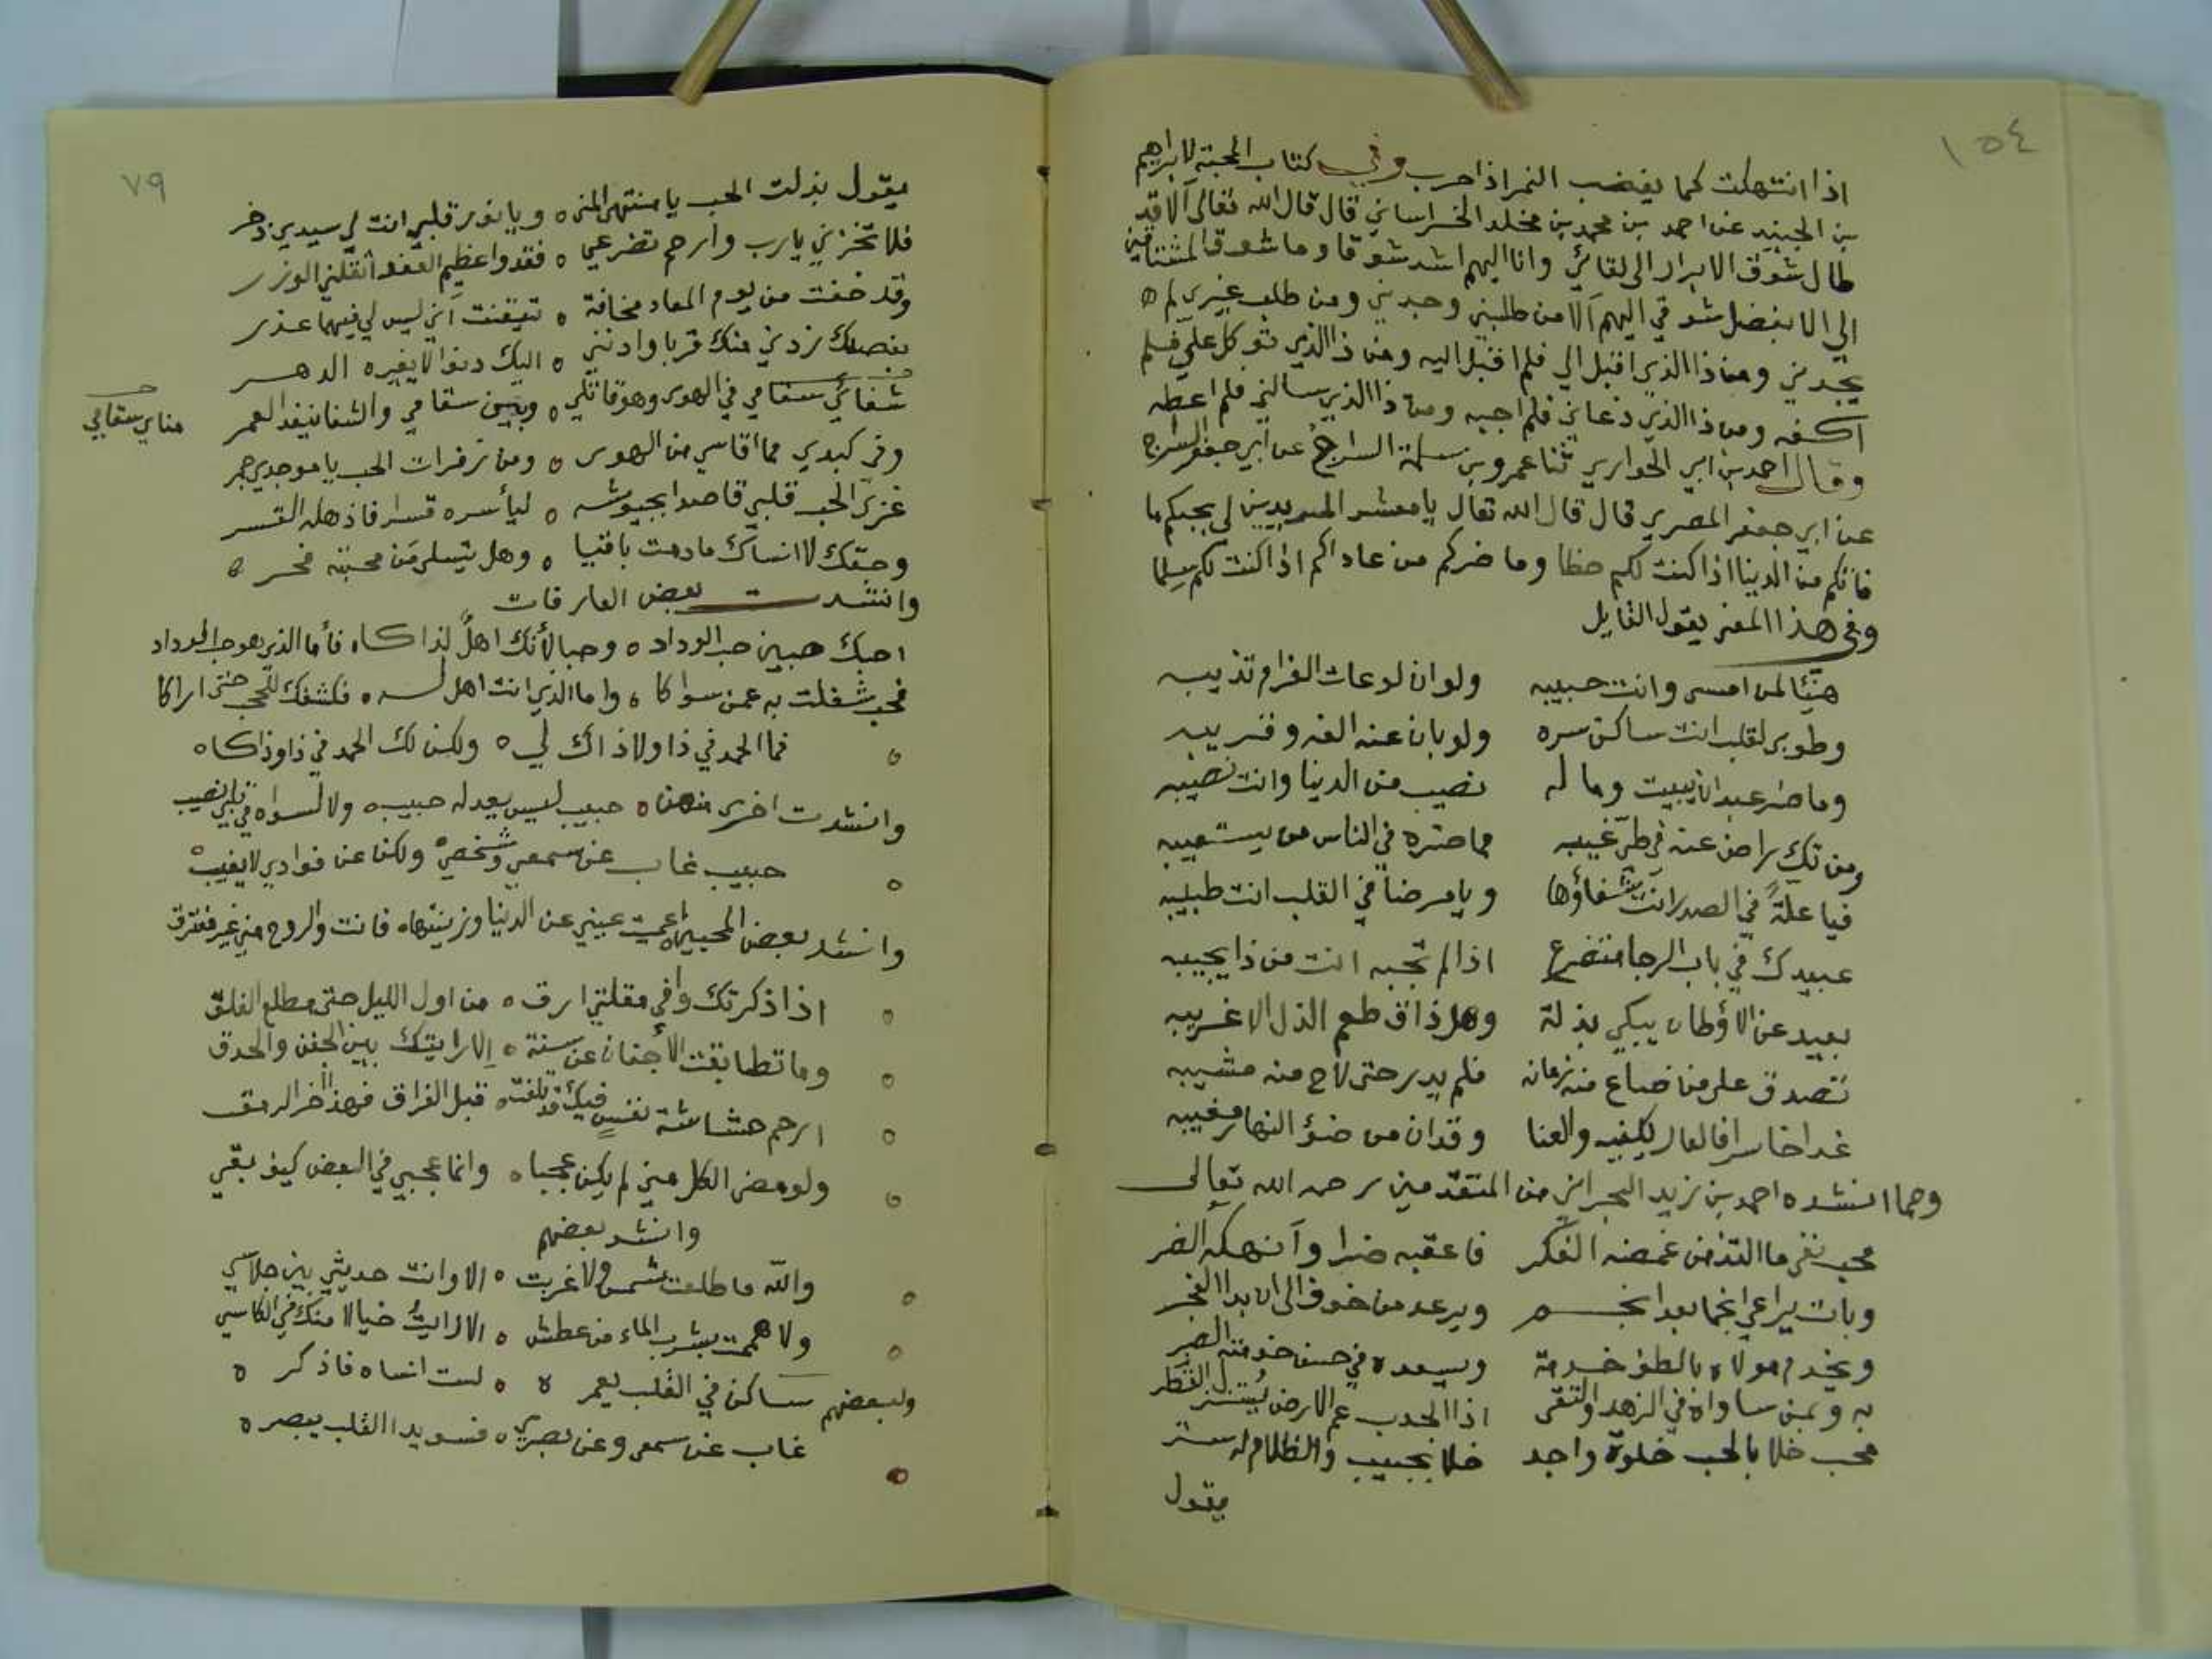 ١٥٤
اذا انتهكت كما يغضب النمر اذا حرب وفي كتاب المحبة لابراهيم
بن الجنيد عن احمد بن محمد بن مخلد الخراساني قال قال الله تعالى ألا قد
طال شوق الابرار الى لقائي وانا اليهم اشد شوقا وما شوق المشتاقين
الي الا بفضل شوقي اليهم ألا من طلبني وجدني ومن طلب غيري لم ه
يجدني ومن ذا الذي اقبل الي فلم اقبل اليه ومن ذا الذي توكل علي فلم
اكفه ومن ذا الذي دعاني فلم اجبه ومن ذا الذي سالني فلم اعطه
وقال احمد بن ابي الحواري ثنا عمرو بن سلمة السراج عن ابي جعفر السراج
عن ابي جعفر المصري قال قال الله تعالى يا معشر المريدين لي بحبكم ما
فاتكم من الدنيا اذا كنت لكم حظا وما ضركم من عاداكم اذا كنت لكم سلما
وفي هذا المعنى يقول القايل
هنيئا لمن امسى وانت حبيبه ولو ان لوعات الغرام تذيبه
وطوبى لقلب انت ساكن سره ولو بان عنه الفه وقريبه
وما ضر عبدا ان يبيت وما له نصيب من الدنيا وانت نصيبه
ومن تك راض عنه في طي غيبه فما ضره في الناس من يستعيبه
فيا علة في الصدر انت شفاؤها ويا مرضا في القلب انت طبيبه
عبيدك في باب الرجا متضرع اذا لم تجبه انت من ذا يجيبه
بعيد عن الاوطان يبكي بذلة وهل ذاق طعم الذل الا غريبه
تصدق على من ضاع منه زمانه فلم يدر حتى لاح منه مشيبه
غدا خاسرا فالعار يكفيه والعنا وقد ان من ضؤ النهار مغيبه
ومما انشده احمد بن زيد البحراني من المتقدمين رحمه الله تعالى
محب نفى ما التذ من غمضه الفكر فاعقبه ضرا وأنهكه الضر
وبات يراعي انجما بعد انجم ويرعد من خوف الى ان بدا الفجر
ويخدم مولاه بالطف خدمة ويسعده في حسن خدمته الصبر
به وبمن ساواه في الزهد والتقى اذا الجدب عم الارض يُستنزل القطر
محب خلا بالحب خلوة واجد خلا بحبيب والظلام له ستر
يقول
٧٩
يقول بذلت الحب يا منتهى المنى ه ويا نور قلبي انت لي سيدي ذخر
فلا تخزني يارب وارحم تضرعي ه فقد واعظيم العفو أثقلني الوزر
وقد خفت من يوم المعاد مخافة ه تيقنت أني ليس لي فيهما عذر
بفضلك زدني منك قربا وادنني ه اليك دنوا لا يغيره الدهر
شفائي سقامي في الهوى وهو قاتلي ه وبين سقامي والشفا ينفد العمر
مناي سقامي
وفي كبدي مما اقاسي من الهوى ه ومن زفرات الحب يا موجدي جمر
غزى الحب قلبي قاصدا بجيوشه ه ليأسره قسرا فاذهله القسر
وحقك لا انساك ما دمت باقيا ه وهل يتسلى من محبته فخر ه
وانشدت بعض العارفات
احبك حبين حب الوداد ه وحبا لأنك اهلٌ لذاكا ه فأما الذي هو حب الوداد
فحب شغلت به عمن سواكا ه واما الذي انت اهل له ه فكشفك للحجب حتى اراكا
ه فما الحمد في ذا ولا ذاك لي ه ولكن لك الحمد في ذا وذاكا ه
وانشدت اخرى منهن ه حبيب ليس يعدله حبيب ه ولا لسواه في قلبي نصيب
ه حبيب غاب عن سمعي وشخصي ه ولكن عن فوادي لا يغيب ه
وانشد بعض المحبين اعميت عيني عن الدنيا وزينتها ه فانت والروح مني غير مفترق
ه اذا ذكرتك وافى مقلتي ارق ه من اول الليل حتى مطلع الفلق
ه وما تطابقت الأجفان عن سنة ه إلا رايتك بين الجفن والحدق
ه ارحم حشاشة نفسٍ فيك قد تلفت ه قبل الفراق فهذا اخر الرمق
ه ولو مضى الكل مني لم يكن عجبا ه وانما عجبي في البعض كيف بقي
وانشد بعضهم
ه والله ما طلعت شمس ولا غربت ه الا وانت حديثي بين جلاسي
ه ولا هممت بشرب الماء من عطش ه الا رايتُ خيالا منك في الكاسي
ولبعضهم ساكن في القلب يعمر ه ه لست انساه فاذكر ه
ه غاب عن سمعي وعن بصري ه فسويدا القلب يبصر ه